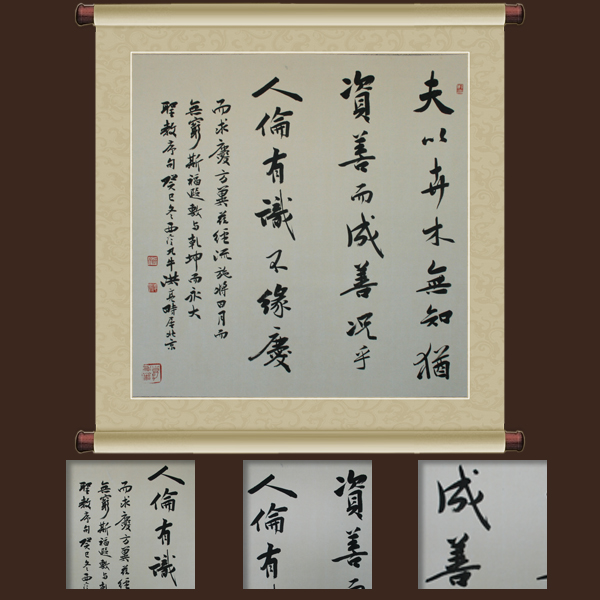 夫以卉木無知猶
資善而成善况乎
人倫有識不緣慶
而求慶方冀茲經流施将日月而
無窮斯福遐敷与乾坤而永大
聖教序句癸巳冬西泠九牛洪時居北京
人倫有識
而求慶方冀茲經
無窮斯福遐敷与
聖教序句癸巳冬西
資善
人倫有
成善